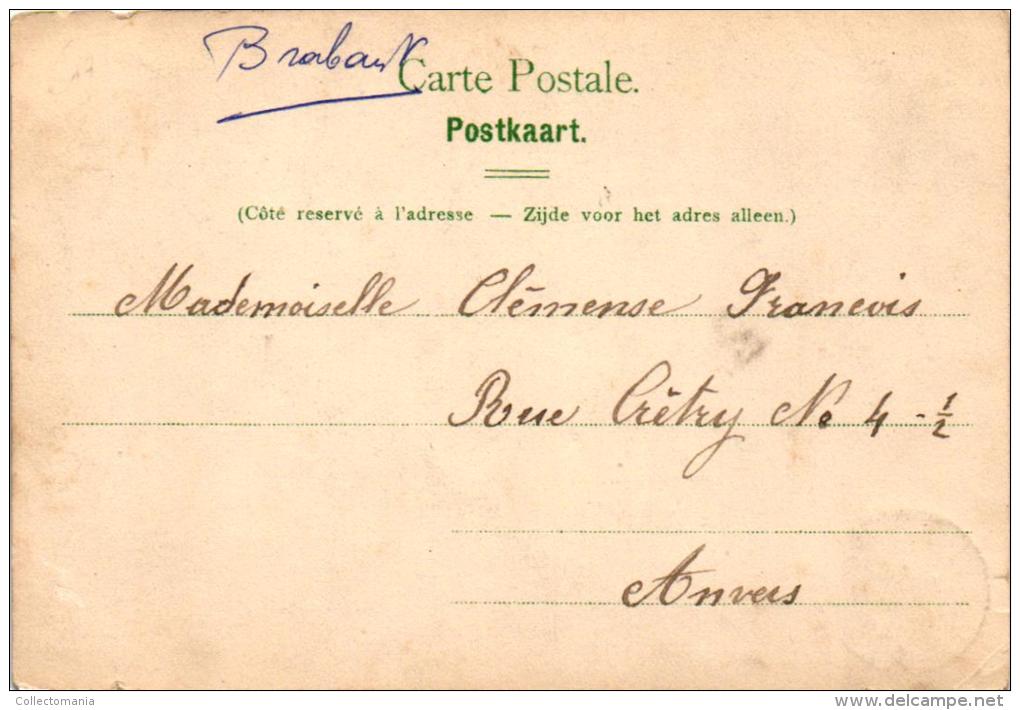 Brabant
Carte Postale.
Postkaart.
(Côté reservé à l'adresse — Zijde voor het adres alleen.)
Mademoiselle Clémense Francois
Rue Crétry No 4 - 1/2
Anvers
Collectomania
www.delcampe.net